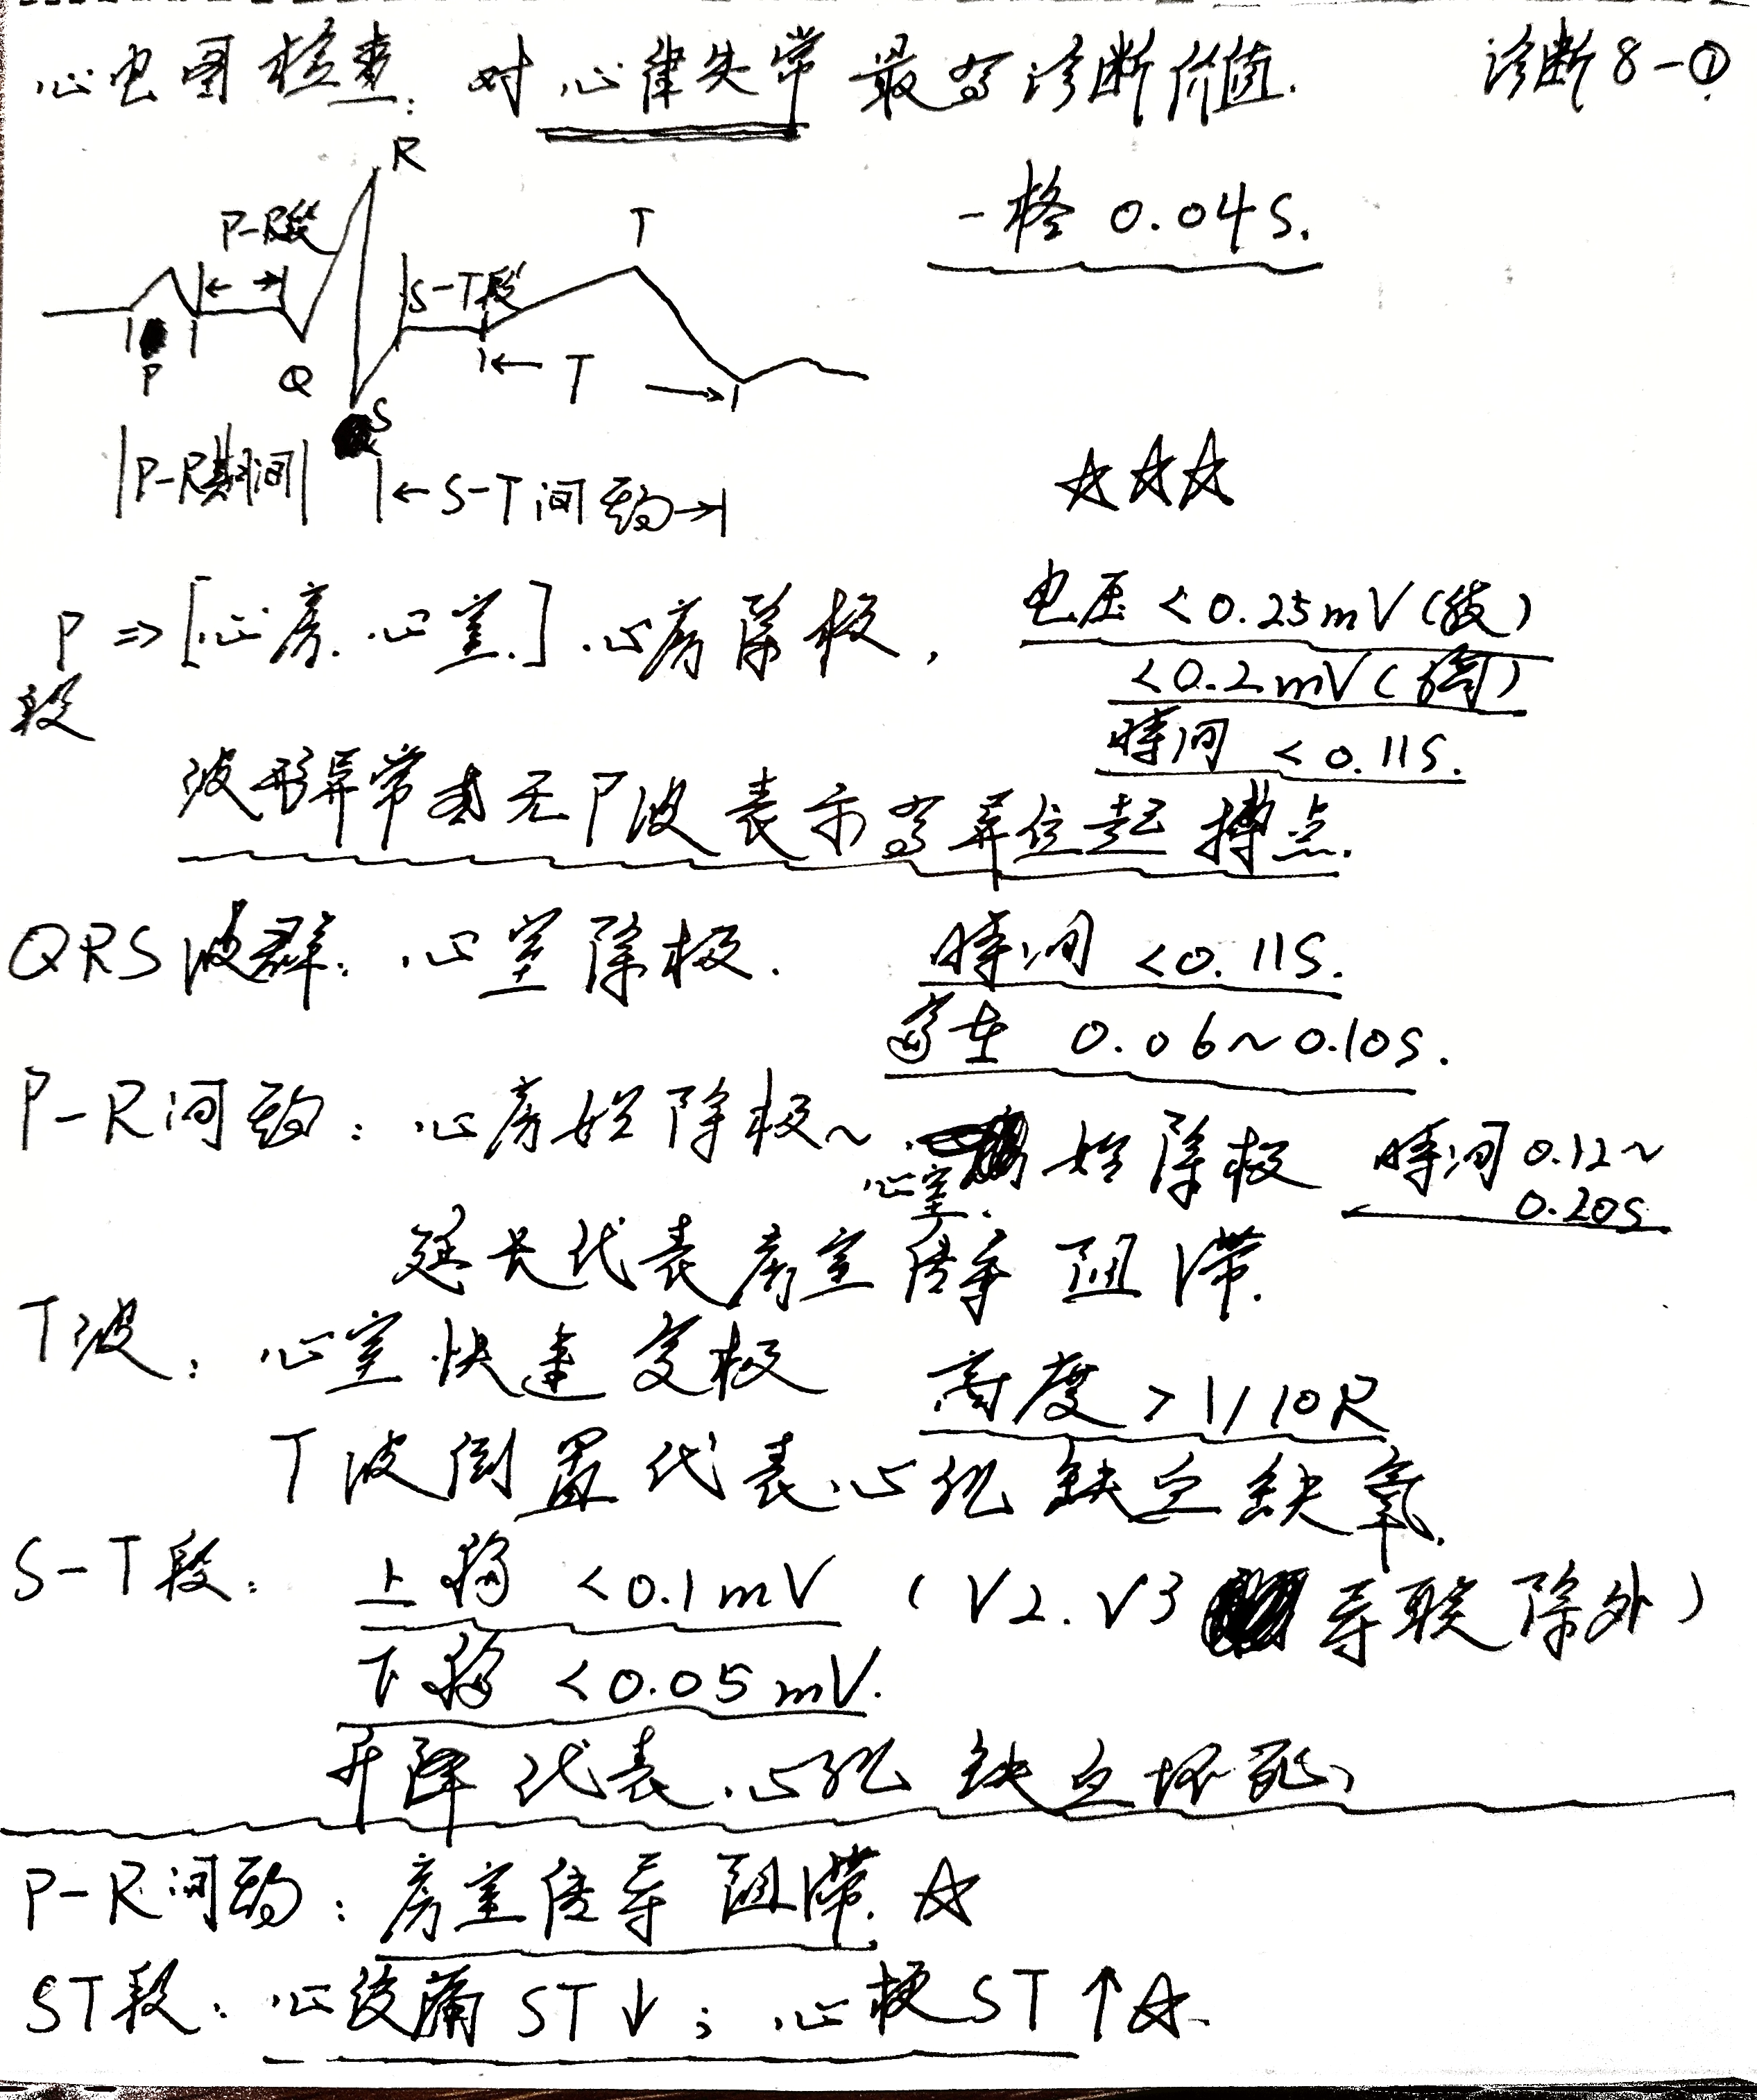 心电图检查：对心律失常最有诊断价值. 诊断8-①
R
P-R段
T
一格 0.04S.
S-T段
P
Q
S
T
P-R期间
S-T间期
☆☆☆
P段 => [心房.心室.] 心房除极，电压 <0.25mV(肢)
<0.2mV(胸)
時间 <0.11S.
波形异常或无P波表示有异位起搏点.
QRS波群：心室除极. 時间 <0.11S.
多在 0.06~0.10S.
P-R间期：心房始除极~心室始除极 時间0.12~
0.20S
延长代表房室传导阻滞.
T波：心室快速复极 高度 >1/10R
T波倒置代表心肌缺血缺氧.
S-T段：上移 <0.1mV (V2.V3导联除外)
下移 <0.05mV.
升降代表心肌缺血坏死
P-R间期：房室传导阻滞.☆
ST段：心绞痛ST↓；心梗ST↑☆.